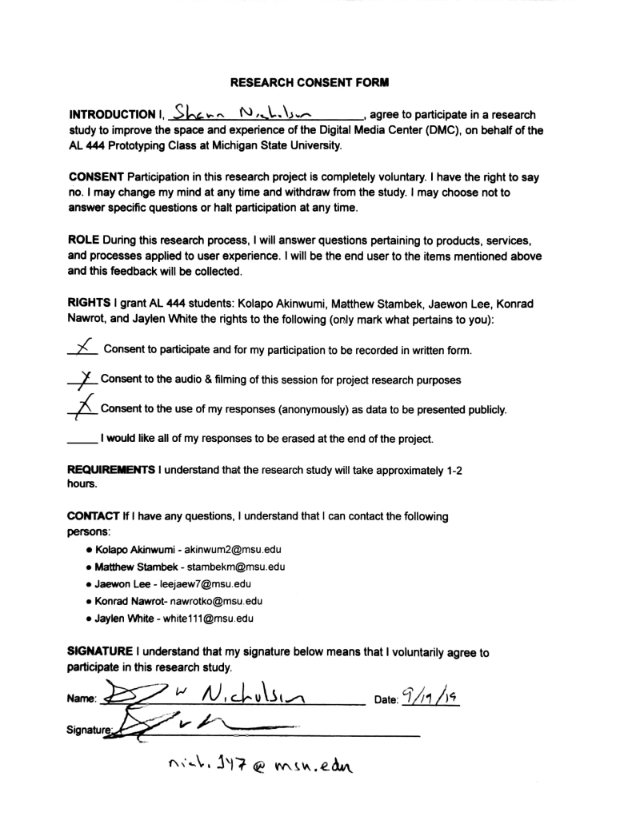 RESEARCH CONSENT FORM
INTRODUCTION I, Shawn Nicholson, agree to participate in a research
study to improve the space and experience of the Digital Media Center (DMC), on behalf of the
AL 444 Prototyping Class at Michigan State University.
CONSENT Participation in this research project is completely voluntary. I have the right to say
no. I may change my mind at any time and withdraw from the study. I may choose not to
answer specific questions or halt participation at any time.
ROLE During this research process, I will answer questions pertaining to products, services,
and processes applied to user experience. I will be the end user to the items mentioned above
and this feedback will be collected.
RIGHTS I grant AL 444 students: Kolapo Akinwumi, Matthew Stambek, Jaewon Lee, Konrad
Nawrot, and Jaylen White the rights to the following (only mark what pertains to you):
X Consent to participate and for my participation to be recorded in written form.
X Consent to the audio & filming of this session for project research purposes
X Consent to the use of my responses (anonymously) as data to be presented publicly.
I would like all of my responses to be erased at the end of the project.
REQUIREMENTS I understand that the research study will take approximately 1-2
hours.
CONTACT If I have any questions, I understand that I can contact the following
persons:
• Kolapo Akinwumi - akinwum2@msu.edu
• Matthew Stambek - stambekm@msu.edu
• Jaewon Lee - leejaew7@msu.edu
• Konrad Nawrot- nawrotko@msu.edu
• Jaylen White - white111@msu.edu
SIGNATURE I understand that my signature below means that I voluntarily agree to
participate in this research study.
Name: W Nicholson Date: 9/19/19
Signature:
@ msu.edu